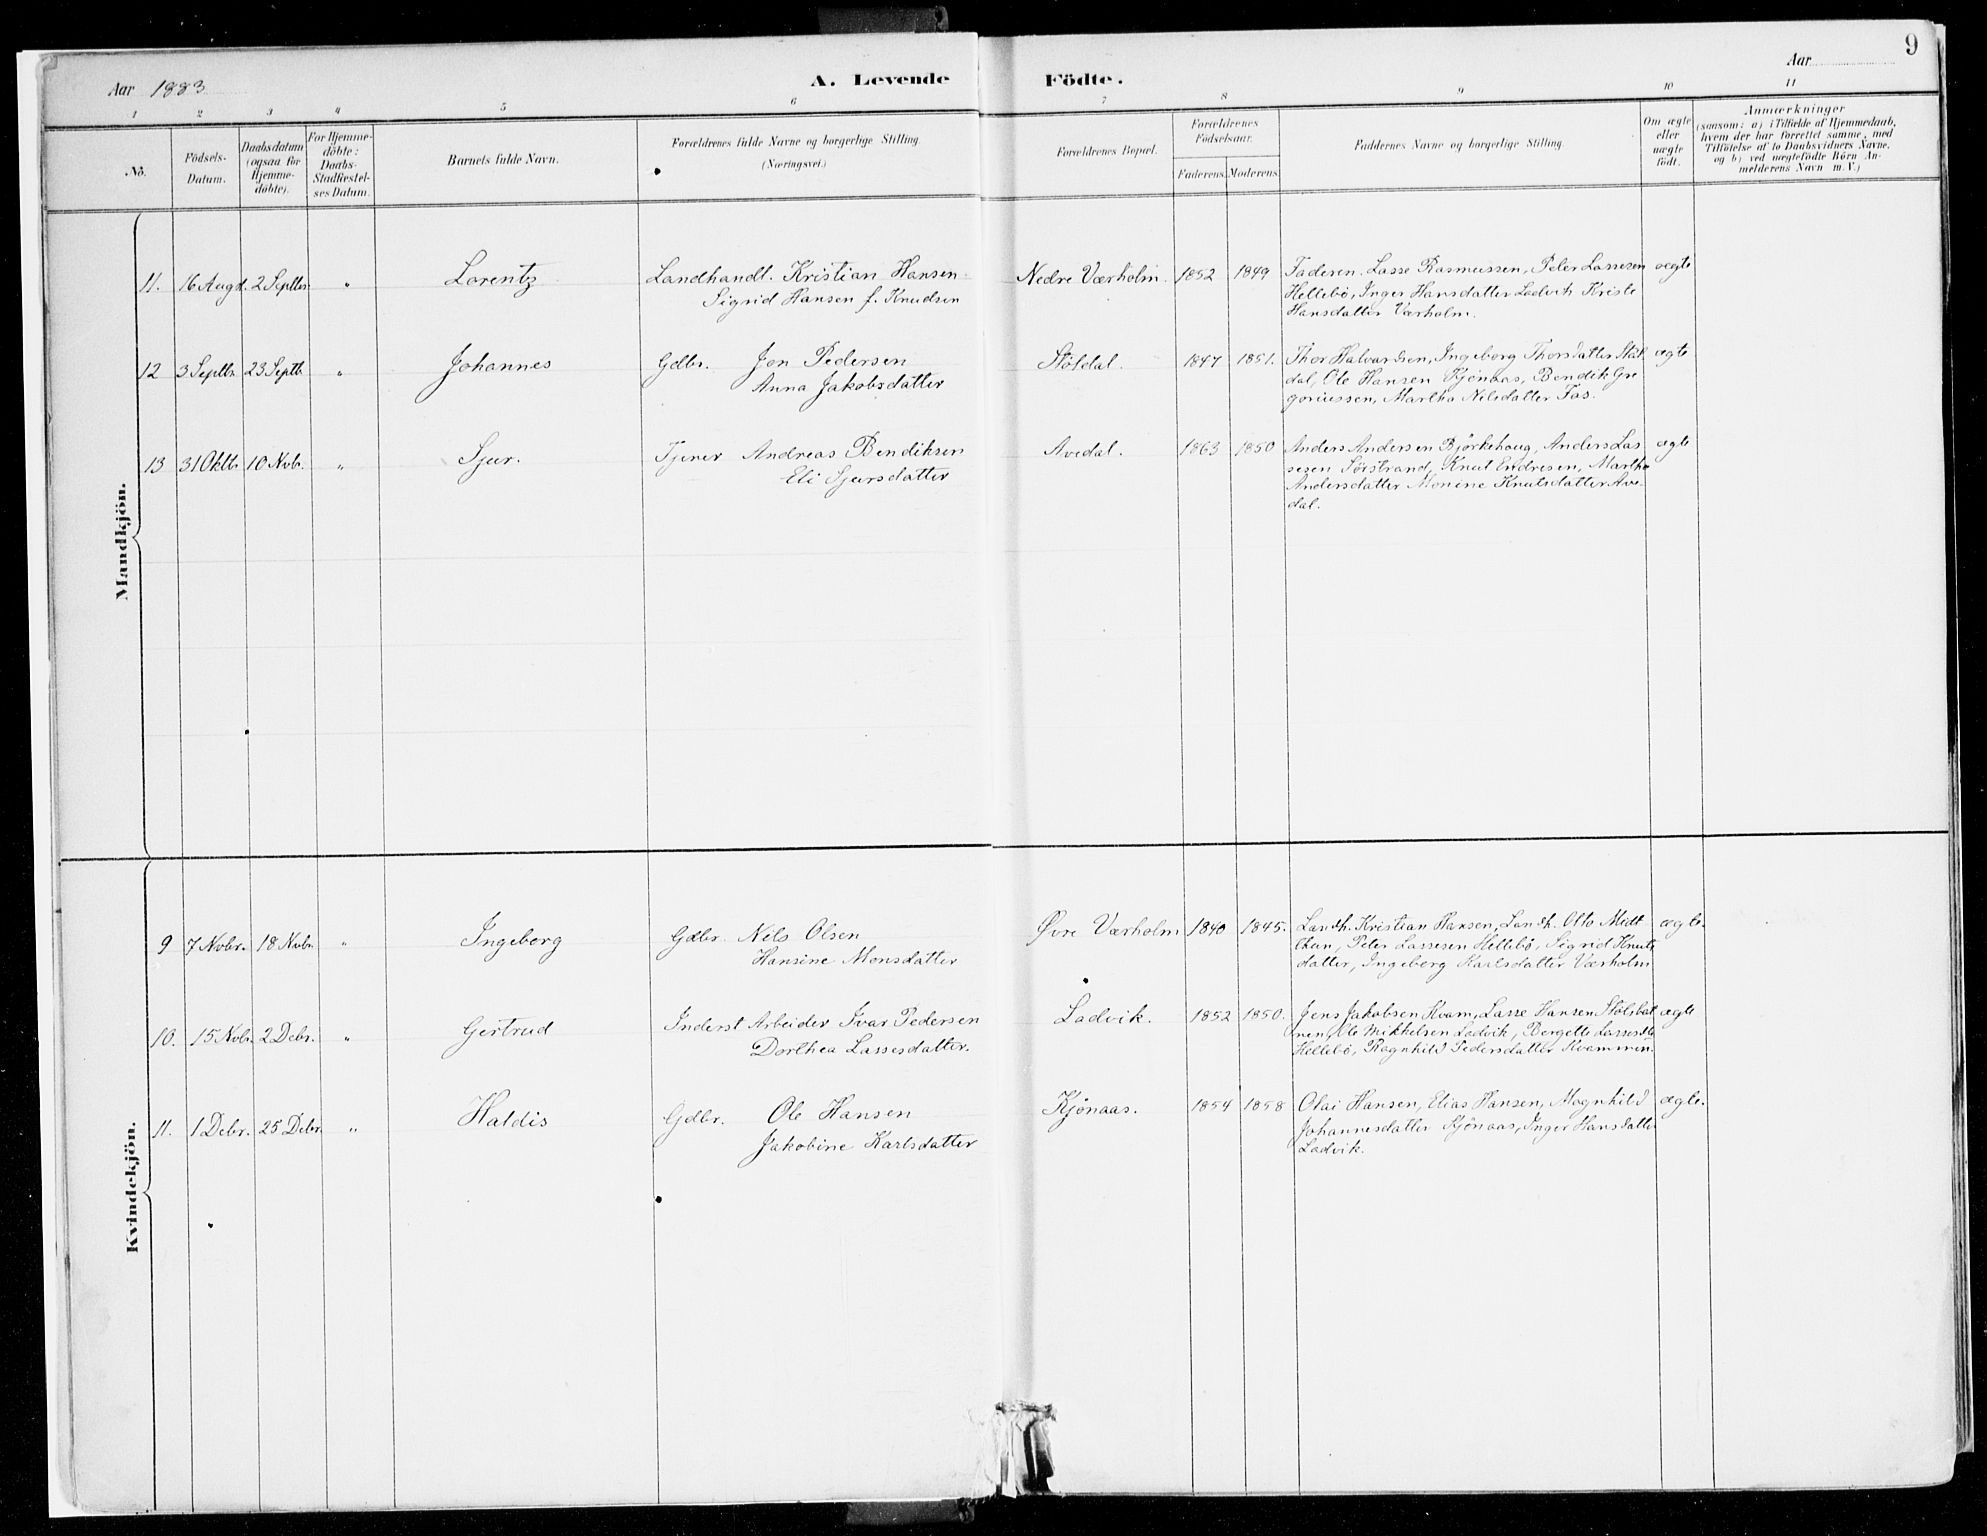 9
Aar 1883
A. Levende Födte.
Aar
1 2 3 4 5 6 7 8 9 10 11
No.
Födsels-Datum.
Daabsdatum (ogsaa for Hjemme-döbte).
For Hjemme-döbte: Daabs-Stadfestel-ses Datum.
Barnets fulde Navn.
Forældrenes fulde Navne og borgerlige Stilling (Næringsvei.)
Forældrenes Bopæl.
Forældrenes Födselsaar.
Faderens. Moderens.
Faddernes Navne og borgerlige Stilling.
Om ægte eller uægte födt.
Anmærkninger
(saasom: a) i Tilfælde af Hjemmedaab,
hvem der har forrettet samme, med
Tilföielse af to Daabsvidners Navne,
og b) ved uægtefödte Börn An-
melderens Navn m.V.)
Mandkjön.
11. 16 Augst. 2 Septbr. " Lorentz Landhandl. Kristian Hansen Nedre Værholm. 1852 1849 Faderen. Lasse Rasmussen, Peter Lassesen ægte
Sigrid Hansen f. Knudsen Hellebö, Inger Hansdatter Ladvik Kriste
Hansdatter Værholm.
12 3 Septbr. 23 Septb. " Johannes Gdbr. Jon Pedersen Stöldal. 1847 1851. Thor Halvardsen, Ingeborg Thorsdatter Stöl ægte
Anna Jakobsdatter dal, Ole Hansen Kjönaas, Bendik Gre
goriussen, Martha Nilsdatter Fos.
13 31 Oktb. 10 Nvbr. " Sjur. Tjener Andreas Bendiksen Avedal. 1863 1850 Anders Andersen Björkehaug, Anders Las ægte
Eli Sjursdatter sesen Sörstrand, Knut Endresen, Martha
Andersdatter Monine Knutsdatter Ave-
dal.
Kvindekjön.
9 7 Nvbr. 18 Nvbr. " Ingeborg Gdbr. Nils Olsen Øvre Værholm 1840 1845. Landh. Kristian Hansen, Landh. Otto Midt ægte.
Hansine Monsdatter Peter Lassesen Hellebö, Sigrid Knuts
datter, Ingeborg Karlsdatter Værholm
10. 15 Nvbr. 2 Debr. " Gertrud Inderst Arbeider Ivar Pedersen Ladvik. 1852 1850. Jens Jakobsen Kvam, Lasse Hansen Stölsbot ægte
Dorthea Lassesdatter. nen, Ole Mikkelsen Ladvik, Bergette Lassesdtr
Hellebö, Ragnhild Pedersdatter Kvammen.
11. 1 Debr. 25 Debr. " Haldis Gdbr. Ole Hansen Kjönaas. 1854 1858 Olai Hansen, Elias Hansen, Magnhild ægte.
Jakobine Karlsdatter Johannesdatter Kjönaas, Inger Hansdatter
Ladvik.